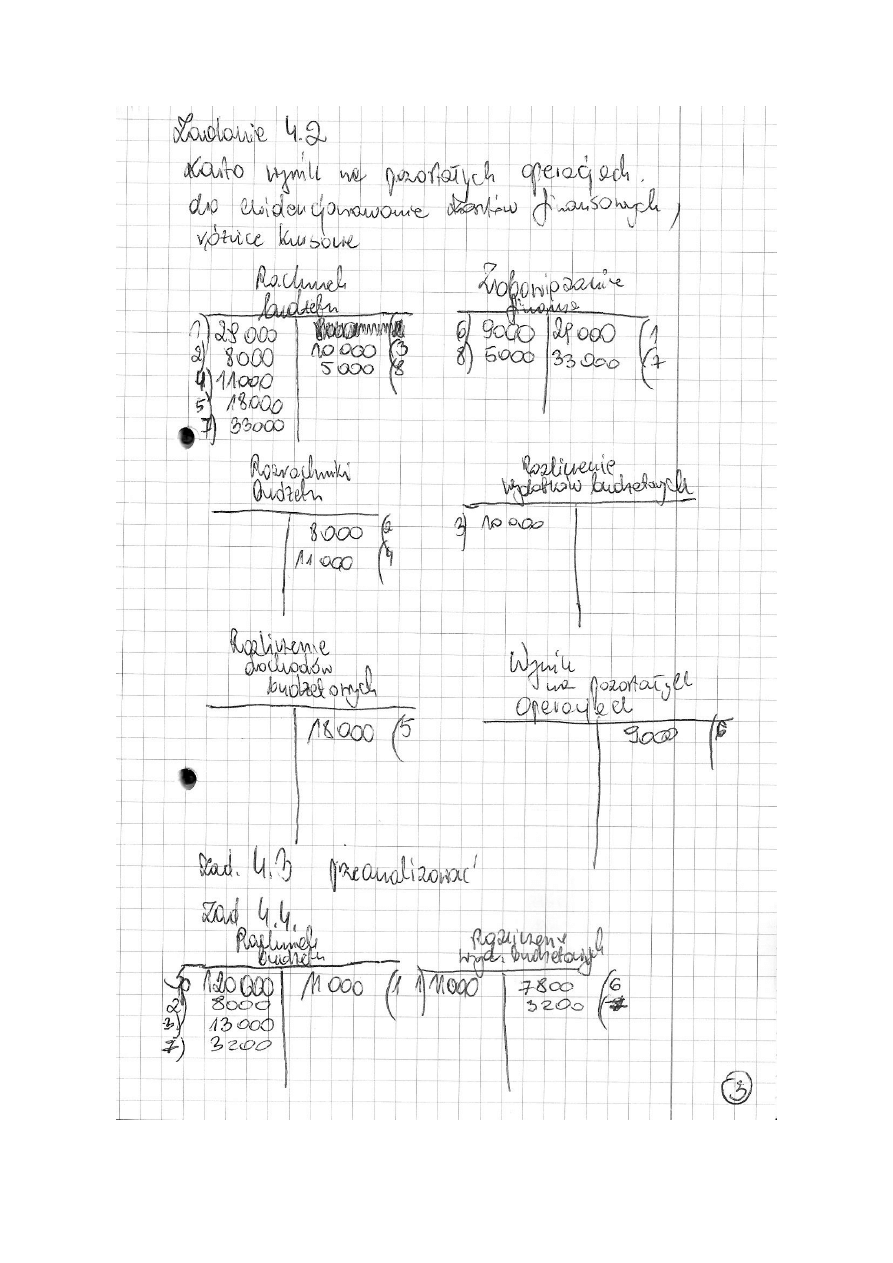 Zadanie 4.2
Konto wynik na pozostałych operacjach.
do ewidencjonowanie kosztów finansowych,
różnice kursowe
Rachunek budżetu
1) 29 000
2) 8000
4) 11000
5) 18000
7) 33000
10 000 (3
5 000 (8
Zobowiązanie finansowe
6) 9000
8) 5000
29 000 (1
33 000 (7
Rozrachunki budżetu
8000 (2
11 000 (4
Rozliczenie wydatków budżetowych
3) 10 000
Rozliczenie dochodów budżetowych
18 000 (5
Wynik na pozostałych operacjach
9000 (6
Zad. 4.3 przeanalizować
Zad 4.4.
Rachunek budżetu
Sp 120 000
2) 8000
3) 13 000
7) 3200
11 000 (1
Rozliczenie wydat. budżetowych
1) 11000
7800 (6
3200 (7
3